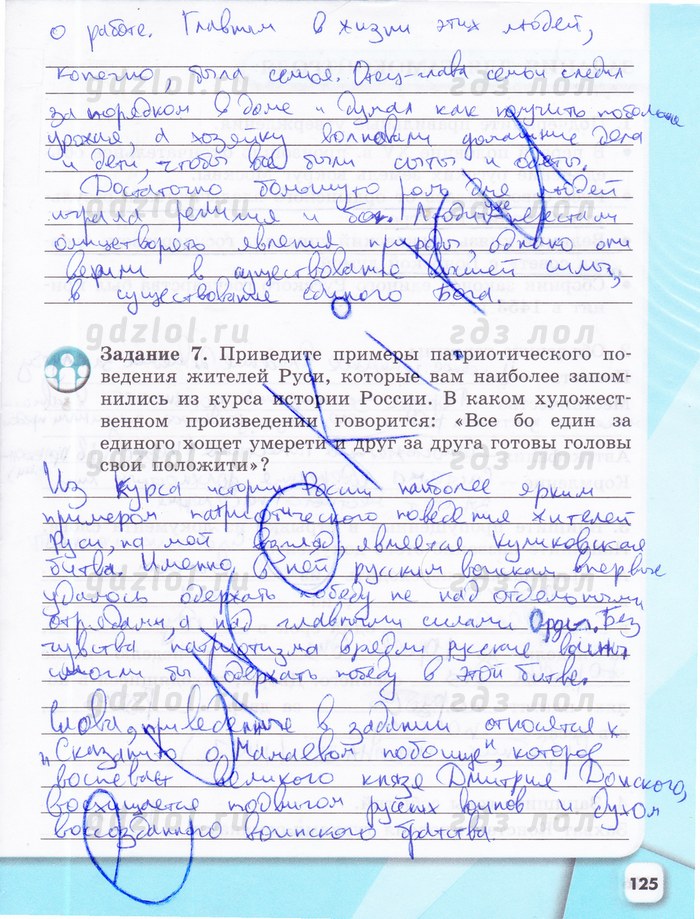 о работе. Главным в жизни этих людей,
конечно, была семья. Отец-глава семьи следил
за порядком в доме и думал как получить побольше
урожая, а хозяйку волновали домашние дела
и дети, чтобы все были сыты и одеты.
Достаточно большую роль для людей
играла религия и бог. Люди уже не перестали
олицетворять явления природы, однако они
верили в существование высшей силы,
в существование единого Бога.
Задание 7. Приведите примеры патриотического по-
ведения жителей Руси, которые вам наиболее запом
нились из курса истории России. В каком художест-
венном произведении говорится: «Все бо един за
единого хощет умерети и друг за друга готовы головы
свои положити»?
Из курса истории России наиболее ярким
примером патриотического поведения жителей
Руси, на мой взгляд, является Куликовская
битва. Именно в ней русским воинам впервые
удалось одержать победу не над отдельными
отрядами, а над главными силами Орды. Без
чувства патриотизма вредли русские воины
смогли бы одержать победу в этой битве.
Слова, приведенные в задании относятся к
"Сказанию о Мамаевом побоище", которое
воспевает великого князя Дмитрия Донского,
восхищается подвигом русских воинов и духом
воссозданного воинского братства.
125
gdzlol.ru
гдз лол
gdzlol.ru
гдз лол
gdzlol.ru
гдз лол
gdzlol.ru
гдз лол
gdzlol.ru
гдз лол
gdzlol.ru
гдз лол
gdzlol.ru
гдз лол